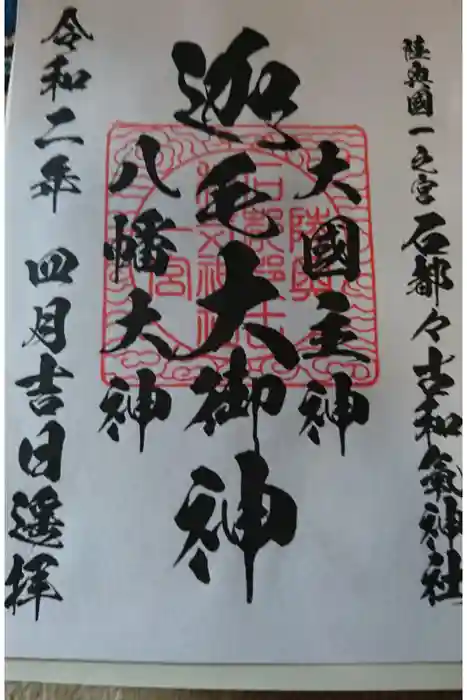 陸奥國一之宮 石都々古和氣神社
大國主神
迦毛大御神
八幡大神
令和二年 四月吉日遥拝